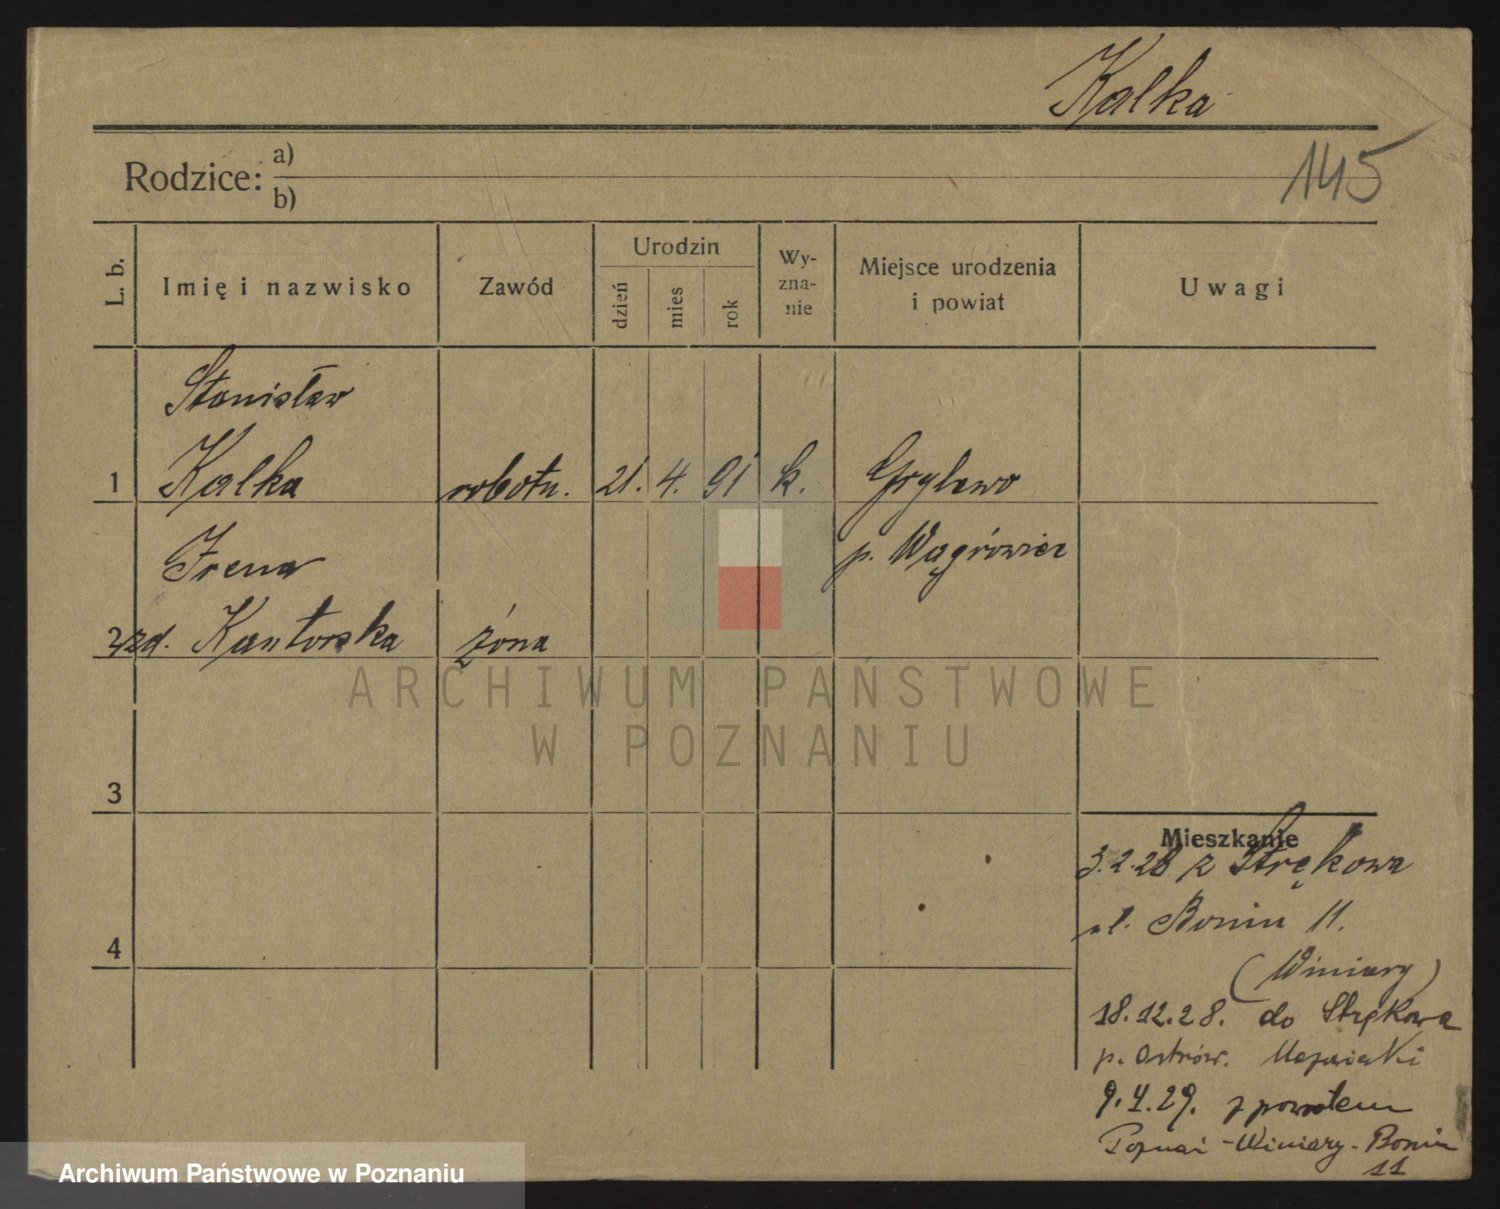 Kalka
145
Rodzice:
a)
b)
L. b.
Imię i nazwisko
Zawód
Urodzin
dzień
mies
rok
Wy-
zna-
nie
Miejsce urodzenia
i powiat
Uwagi
Stanisław
1 Kalka robotn. 21. 4. 91 k. Grylewo
Irena p. Wągrówiec
2 zd. Kantorska żona
ARCHIWUM PAŃSTWOWE
W POZNANIU
3
4
Mieszkanie
3.2.28 z Strękowa
ul. Bonin 11.
(Winiary)
18.12.28. do Strękowa
p. Ostrów.
9.4.29. z powrotem
Poznań - Winiary - Bonin
11
Archiwum Państwowe w Poznaniu